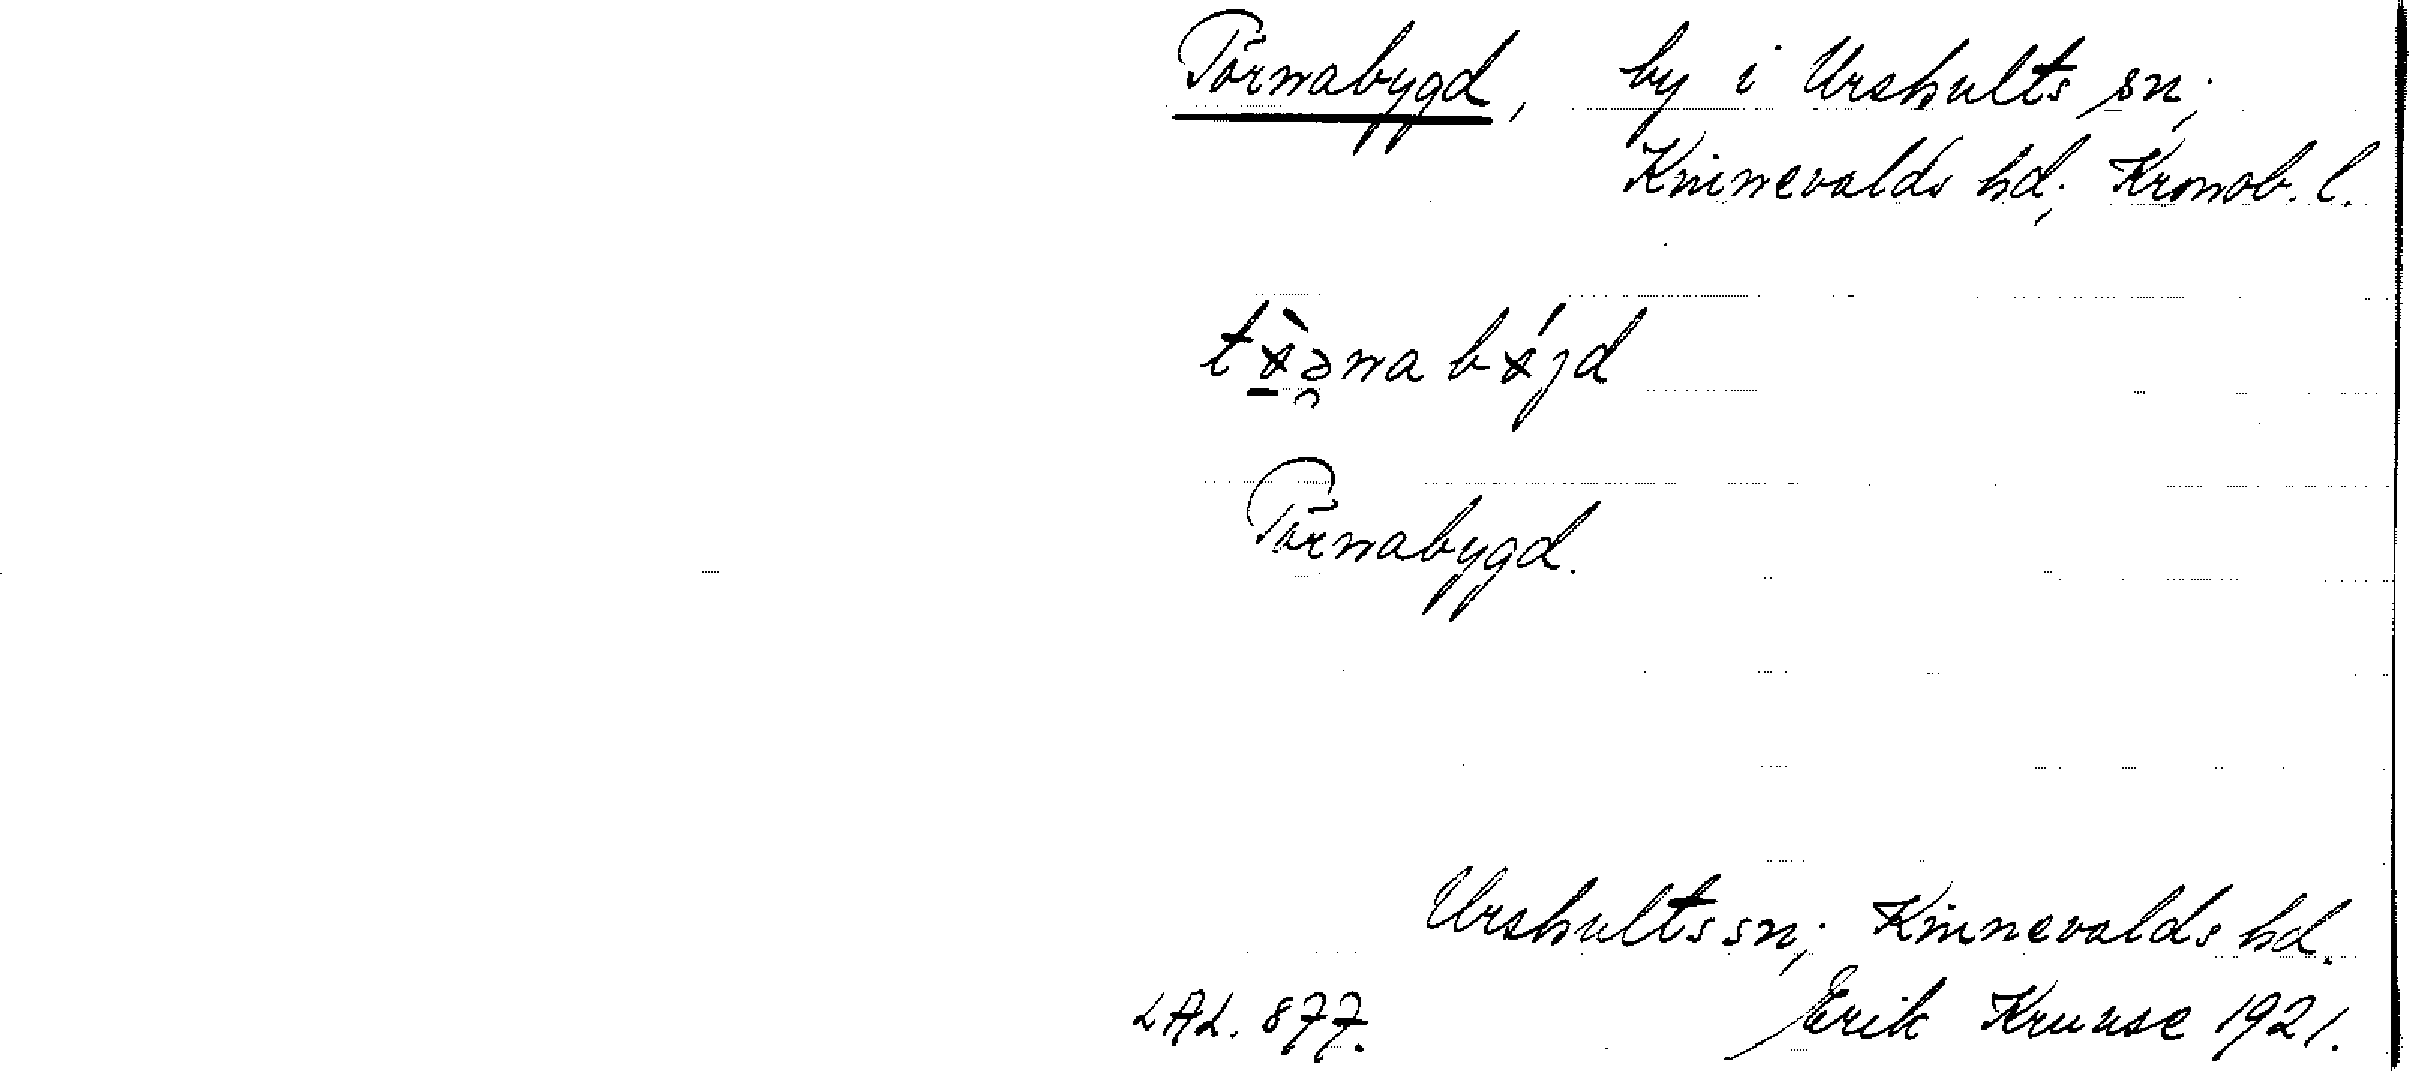 Törnabygd, by i Urshults sn;
Kinnevalds hd; Kronob. l.
Törnabygd.
Urshults sn; Kinnevalds hd.
LAL. 877. Erik Kruuse 1921.